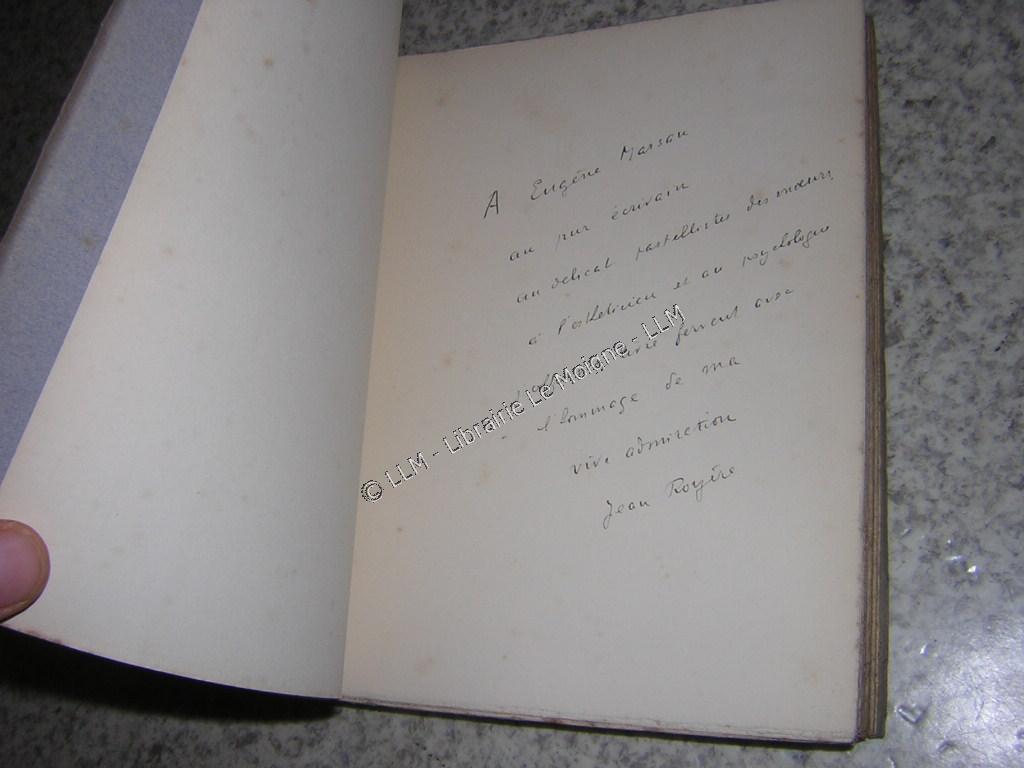 A Eugène Marsan
au pur écrivain
au délicat pastelliste des mœurs,
à l'esthéticien et au psychologue
livre fervent avec
l'hommage de ma
vive admiration
Jean Royère
© LLM - Librairie Le Moigne - LLM